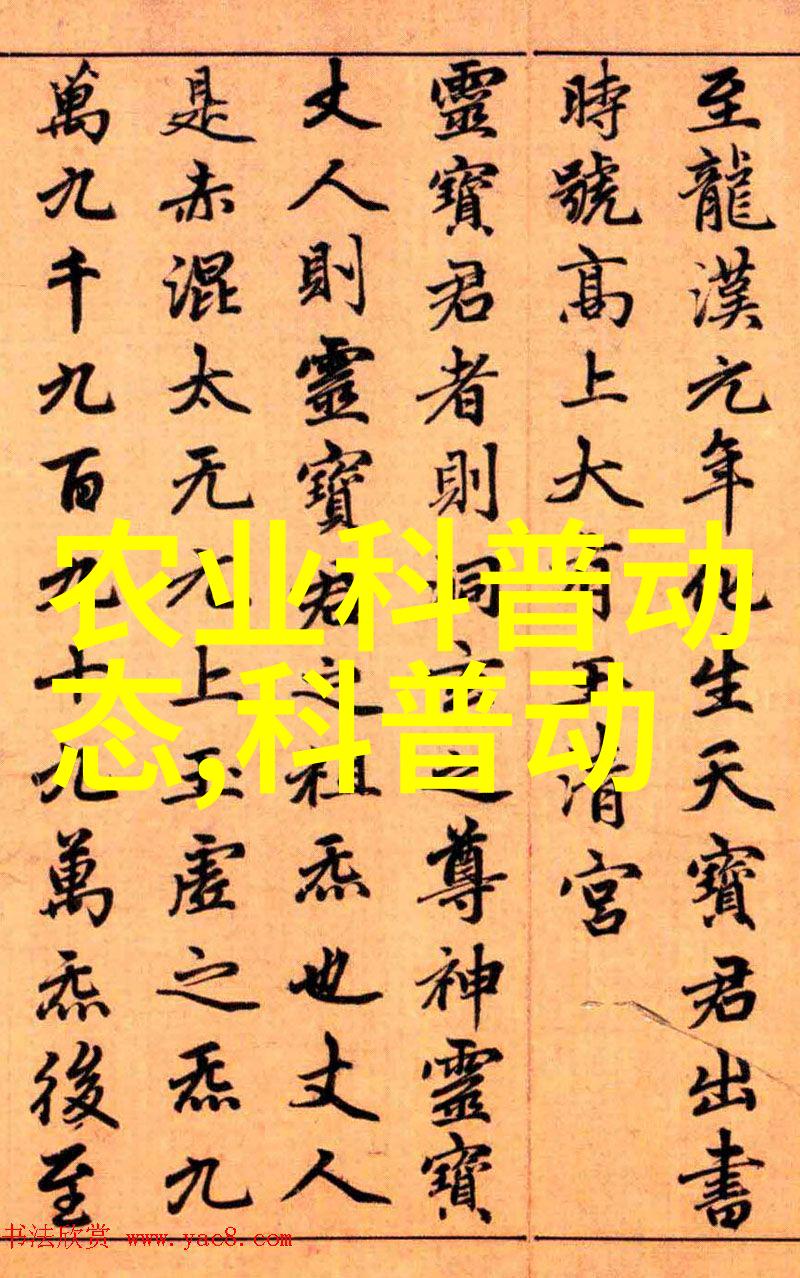 至龍漢元年化生天寶君出書
時號高上大有玉清宮
靈寶君者則洞玄之尊神靈寶
丈人則靈寶君之祖炁也丈人
是赤混太无元上玉虛之炁九
萬九千九百九十九萬炁後至
农业科普动
态,科普动
书法欣赏 www.yac8.com